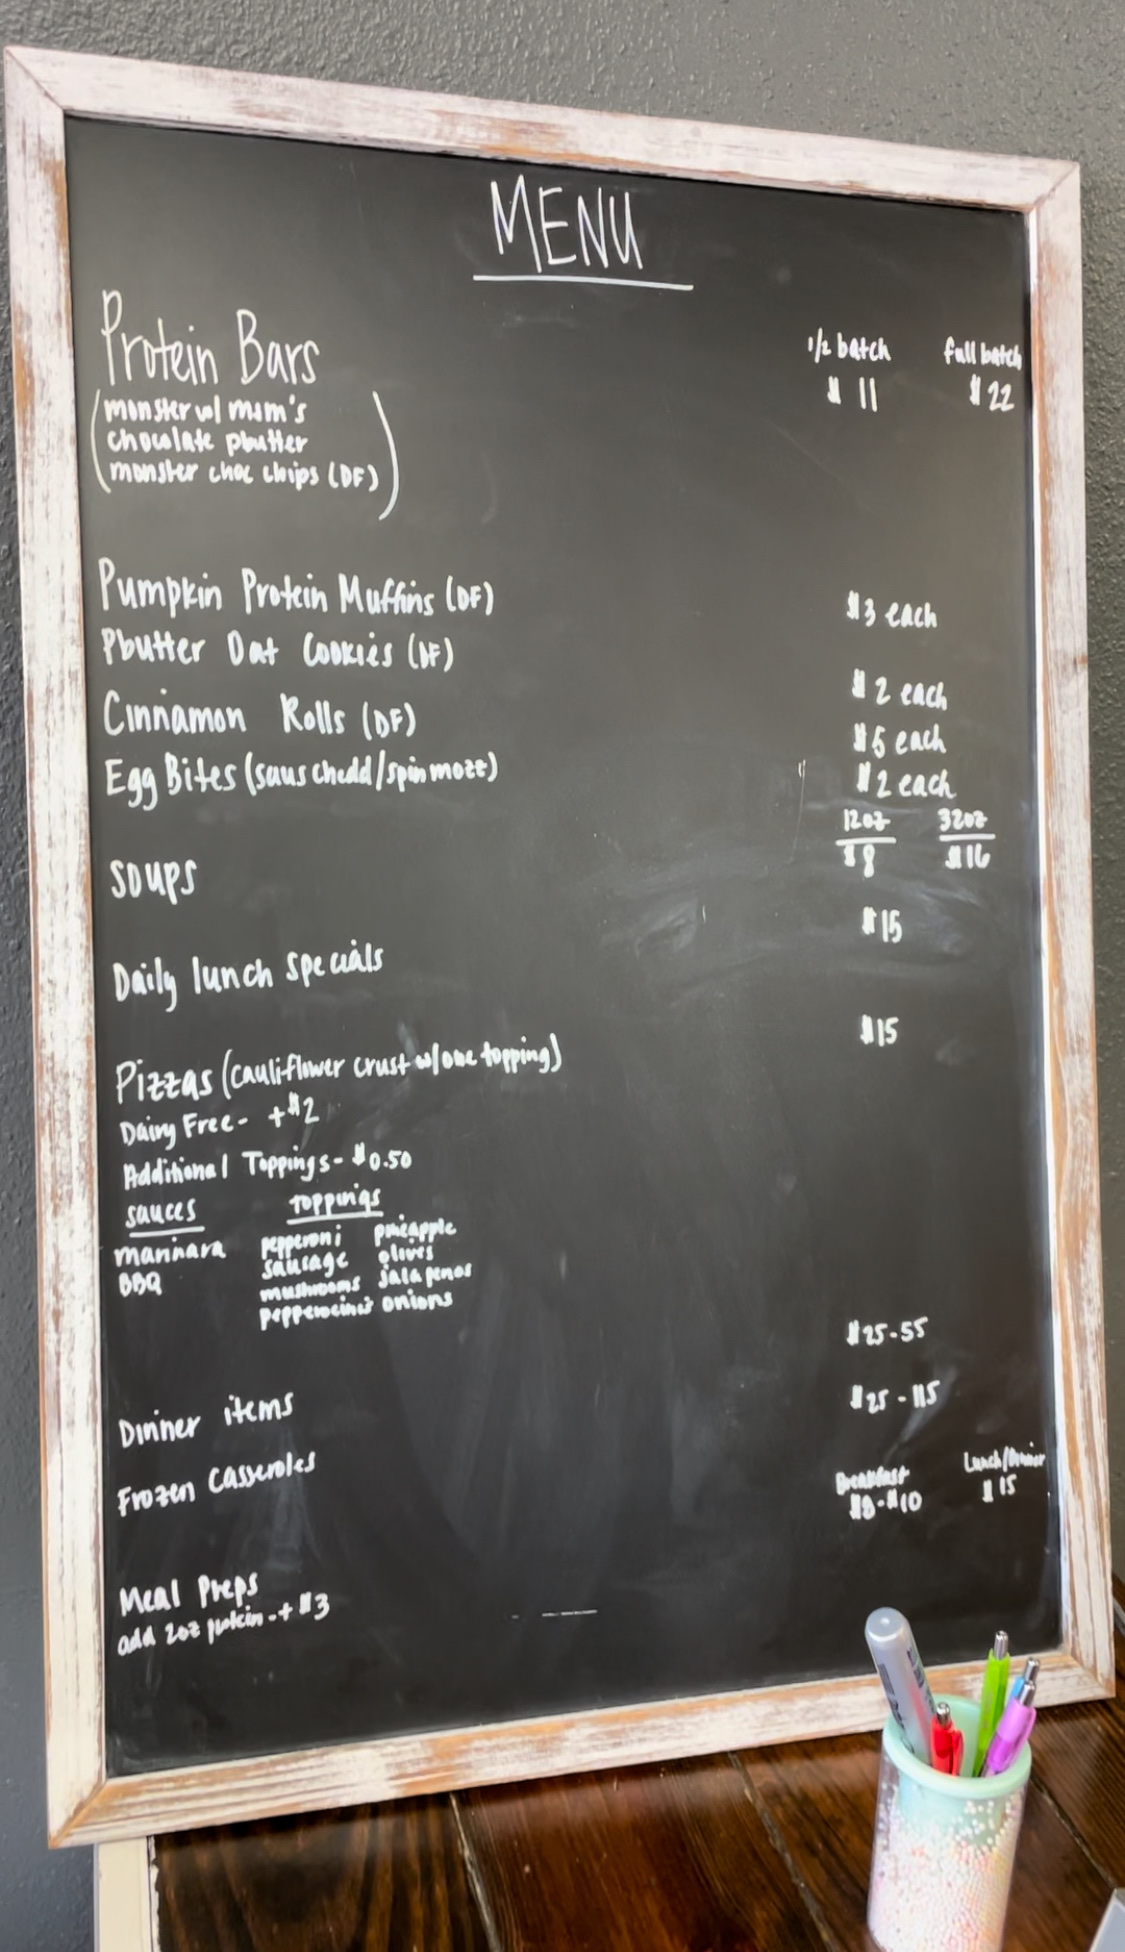 MENU
Protein Bars
1/2 batch full batch
$ 11 $22
(monster w/ m&m's
chocolate pbutter
monster choc chips (DF))
Pumpkin Protein Muffins (DF) $3 each
Pbutter Oat Cookies (DF) $2 each
Cinnamon Rolls (DF) $5 each
Egg Bites (saus chedd/spin mozz) $2 each
12oz 32oz
$8 $16
soups
Daily lunch specials $15
Pizzas (cauliflower crust w/one topping) $15
Dairy Free- +$2
Additional Toppings- $0.50
sauces toppings
marinara pepperoni pineapple
BBQ sausage olives
mushrooms jalapenos
onions
Dinner items $25-55
Frozen Casseroles $25-115
Breakfast Lunch/Dinner
$8-$10 $15
Meal Preps
add 2oz protein-+$3